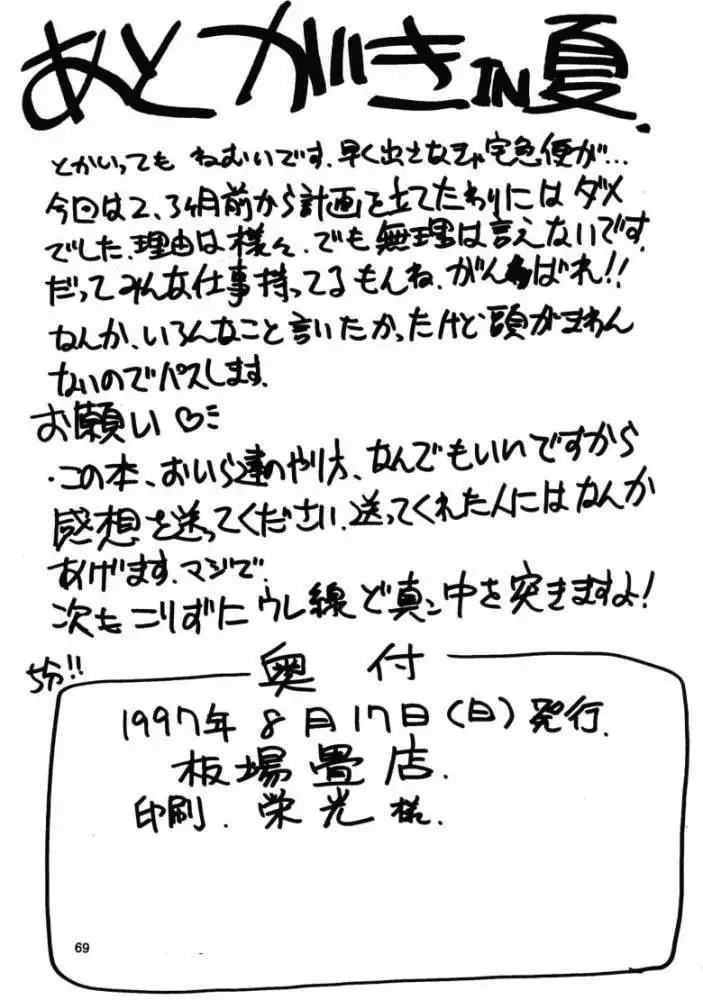 あとがきIN夏.
とかいっても ねむいです.早く出さなきゃ宅急便が…
今回は2、3ヶ月前から計画を立てたわりにはダメ
でした.理由は様々.でも無理は言えないです.
だってみんな仕事持ってるもんね.がんばれ!!
なんか、いろんなこと言いたかったけど頭がまわん
ないのでパスします.
お願い♡
・この本、おいら達のやり方、なんでもいいですから
感想を送ってください.送ってくれた人にはなんか
あげます.マジで.
次もこりずにウレ線ど真ン中を突きますよ!
多分!!
奥付
1997年8月17日(日)発行.
板場畳店.
印刷.栄光様.
69